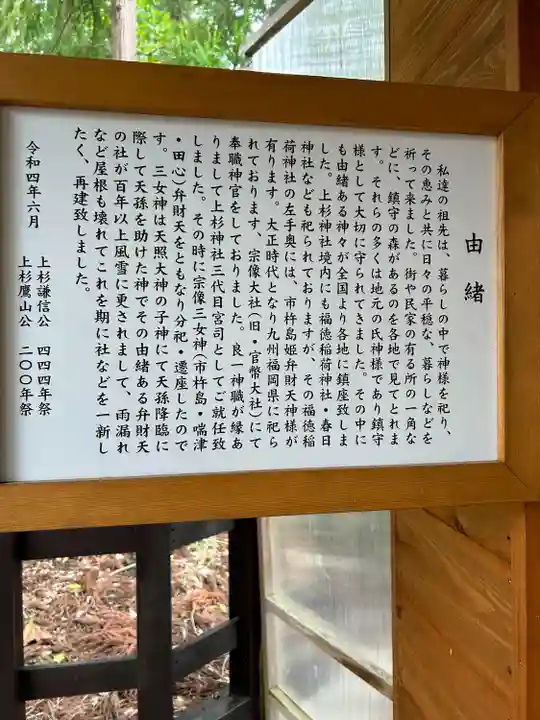 由緒
私達の祖先は、暮らしの中で神様を祀り、
その恵みと共に日々の平穏な、暮らしなどを
祈って来ました。街や民家の有る所の一角な
どに、鎮守の森があるのを各地で見てとれま
す。それらの多くは地元の氏神様であり鎮守
様として大切に守られてきました。その中に
も由緒ある神々が全国より各地に鎮座致しま
した。上杉神社境内にも福徳稲荷神社・春日
神社なども祀られておりますが、その福徳稲
荷神社の左手奥には、市杵島姫弁財天神様が
有ります。大正時代となり九州福岡県に祀ら
れております、宗像大社(旧・官幣大社)にて
奉職神官をしておりました。良一神職が縁あ
りまして上杉神社三代目宮司としてご就任致
しました。その時に宗像三女神(市杵島・喘津
・田心)弁財天をともなり分祀・遷座したので
す。三女神は天照大神の子神にて天孫降臨に
際して天孫を助けた神でその由緒ある弁財天
の社が百年以上風雪に更されまして、雨漏れ
など屋根も壊れてこれを期に社などを一新し
たく、再建致しました。
令和四年六月
上杉謙信公 四四四年祭
上杉鷹山公 二〇〇年祭